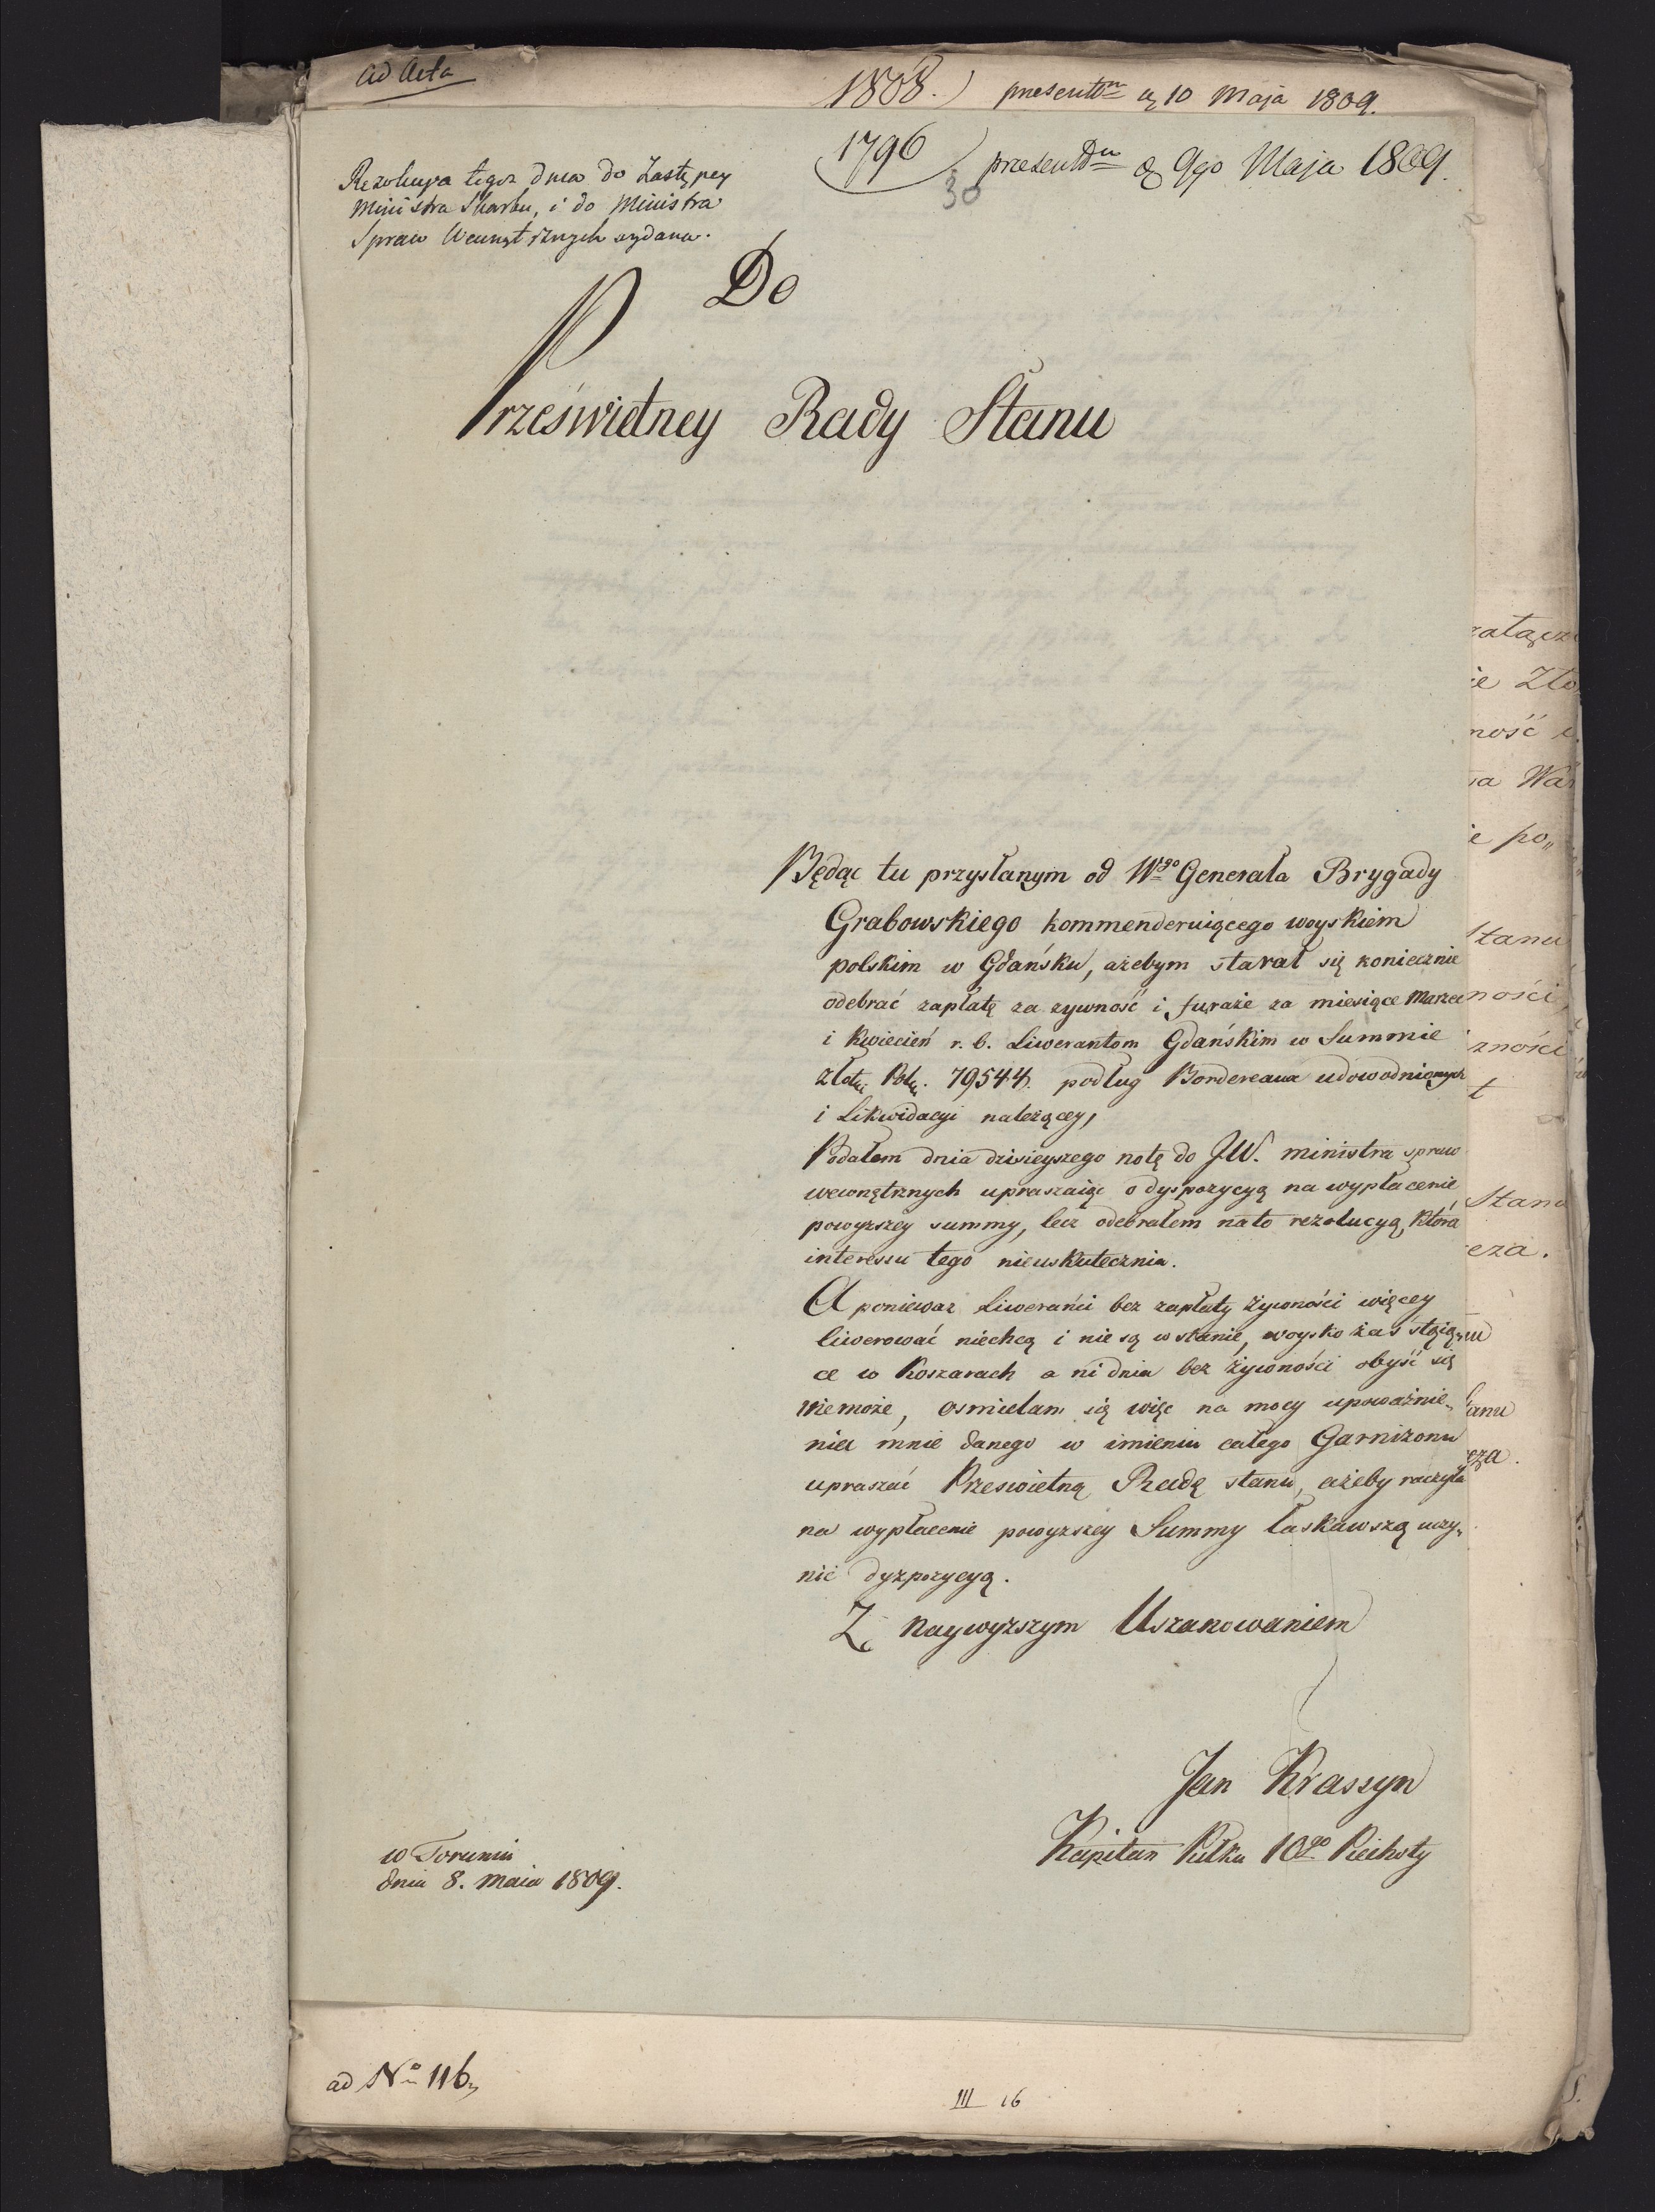 ad Acta
1808.) presentm d. 10 Maja 1809.
1796 presentdm d. 9go Maja 1809.
30
Rezolucya tegoz dnia do Zastępcy
Ministra Skarbu, i do Ministra
Spraw Wewnętrznych wydana.
Do
Prześwietney Rady Stanu
Będąc tu przysłanym od Wgo Generała Brygady
Grabowskiego kommenderuiącego woyskiem
polskim w Gdańsku, ażebym starał się koniecznie
odebrać zapłatę za zywność i furaże za miesiące Marzec
i Kwiecień r. b. Liwerantom Gdańskim w Summie
złotu. Pols. 79544. podług Bordereaux udowodnionych
i Likwidacyi należącey,
Podałem dnia dzisieyszego notę do JW. ministra spraw
wewnętrznych upraszaiąc o dyspozycyą na wypłacenie
powyższey summy, lecz odebrałem na to rezolucyą, która
interessu tego nieuskutecznia.
A poniewaz Liweranci bez zapłaty żywności więcey
liwerować niechcą i nie są w stanie, woysko zaś stoią„
ce w Koszarach a ni dnia bez żywności obyść się
niemoże, osmielam się więc na mocy upoważnie„
nia mnie danego w imieniu całego Garnizonu
upraszać Prześwietną Radę stanu, ażeby raczyła
na wypłacenie powyższey Summy łaskawszą uczy„
nić dyzpozycyą.
Z naywyższym Uszanowaniem
Jan Krassyn
Kapitan Pułku 10go Piechoty
w Toruniu
dnia 8. maia 1809.
załącz
ie Zło
ność i
na War
ie po„
Stanu
ności
zności
t
Stanu
eza.
anu
eza.
ad No 116
III 16